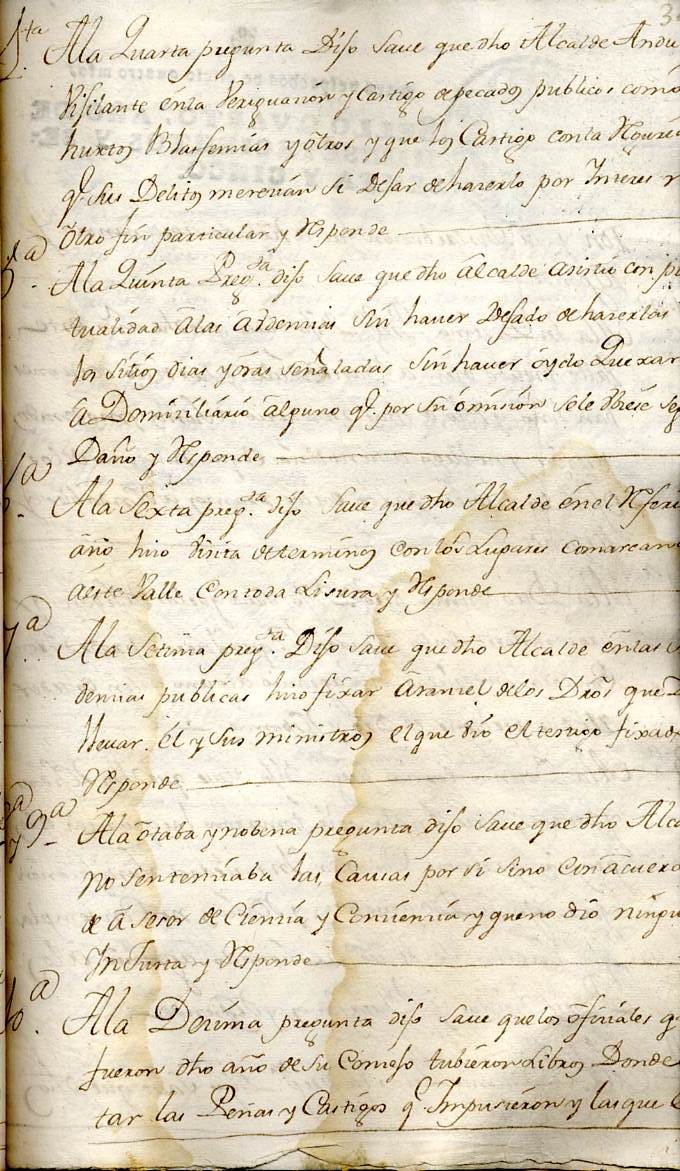 4ta A la Quarta pregunta Dijo save que dho Alcalde Andu
Vijilante en la Veriguazión y Castigo de pecados publicos como
hurtos Blasfemias y otros y que los Castigo con la
q.e sus Delitos merezian si Dejar de hazerlo por Interes
otro fin particular y Responde
5a A la Quinta Preg.ta dijo save que dho Alcalde asistió con pu
tualidad a las Audenzias sin haver dejado de hazerlas
los sitios dias y oras señaladas sin haver oydo Quexar
a Domiziliario alguno q.e por su omisión se le
Daño y Responde
A la Sexta preg.ta dijo save que dho Alcalde en el Referi
año hizo visita de terminos con los Lugares Comarcan
a este Valle con toda Lisura y Responde
7a A la Setima preg.ta Dijo save que dho Alcalde en las
denzias publicas hizo fixar Aranzel de los Dros que
llevar él y sus ministros el que vio el testigo fixado
Responde
8a y 9a A la otaba y nobena pregunta dijo save que dho Alca
no sentenziaba las Causas por si sino con acuerd
de Asesor de Cienzia y Conzienzia y que no dio ningu
Injusta y Responde
10a A la Dezima pregunta dijo save que los ofiziales q
fueron dho año de su Conzejo tubieron Libros Donde
tar las Penas y Castigos q.e Impusieron y las que